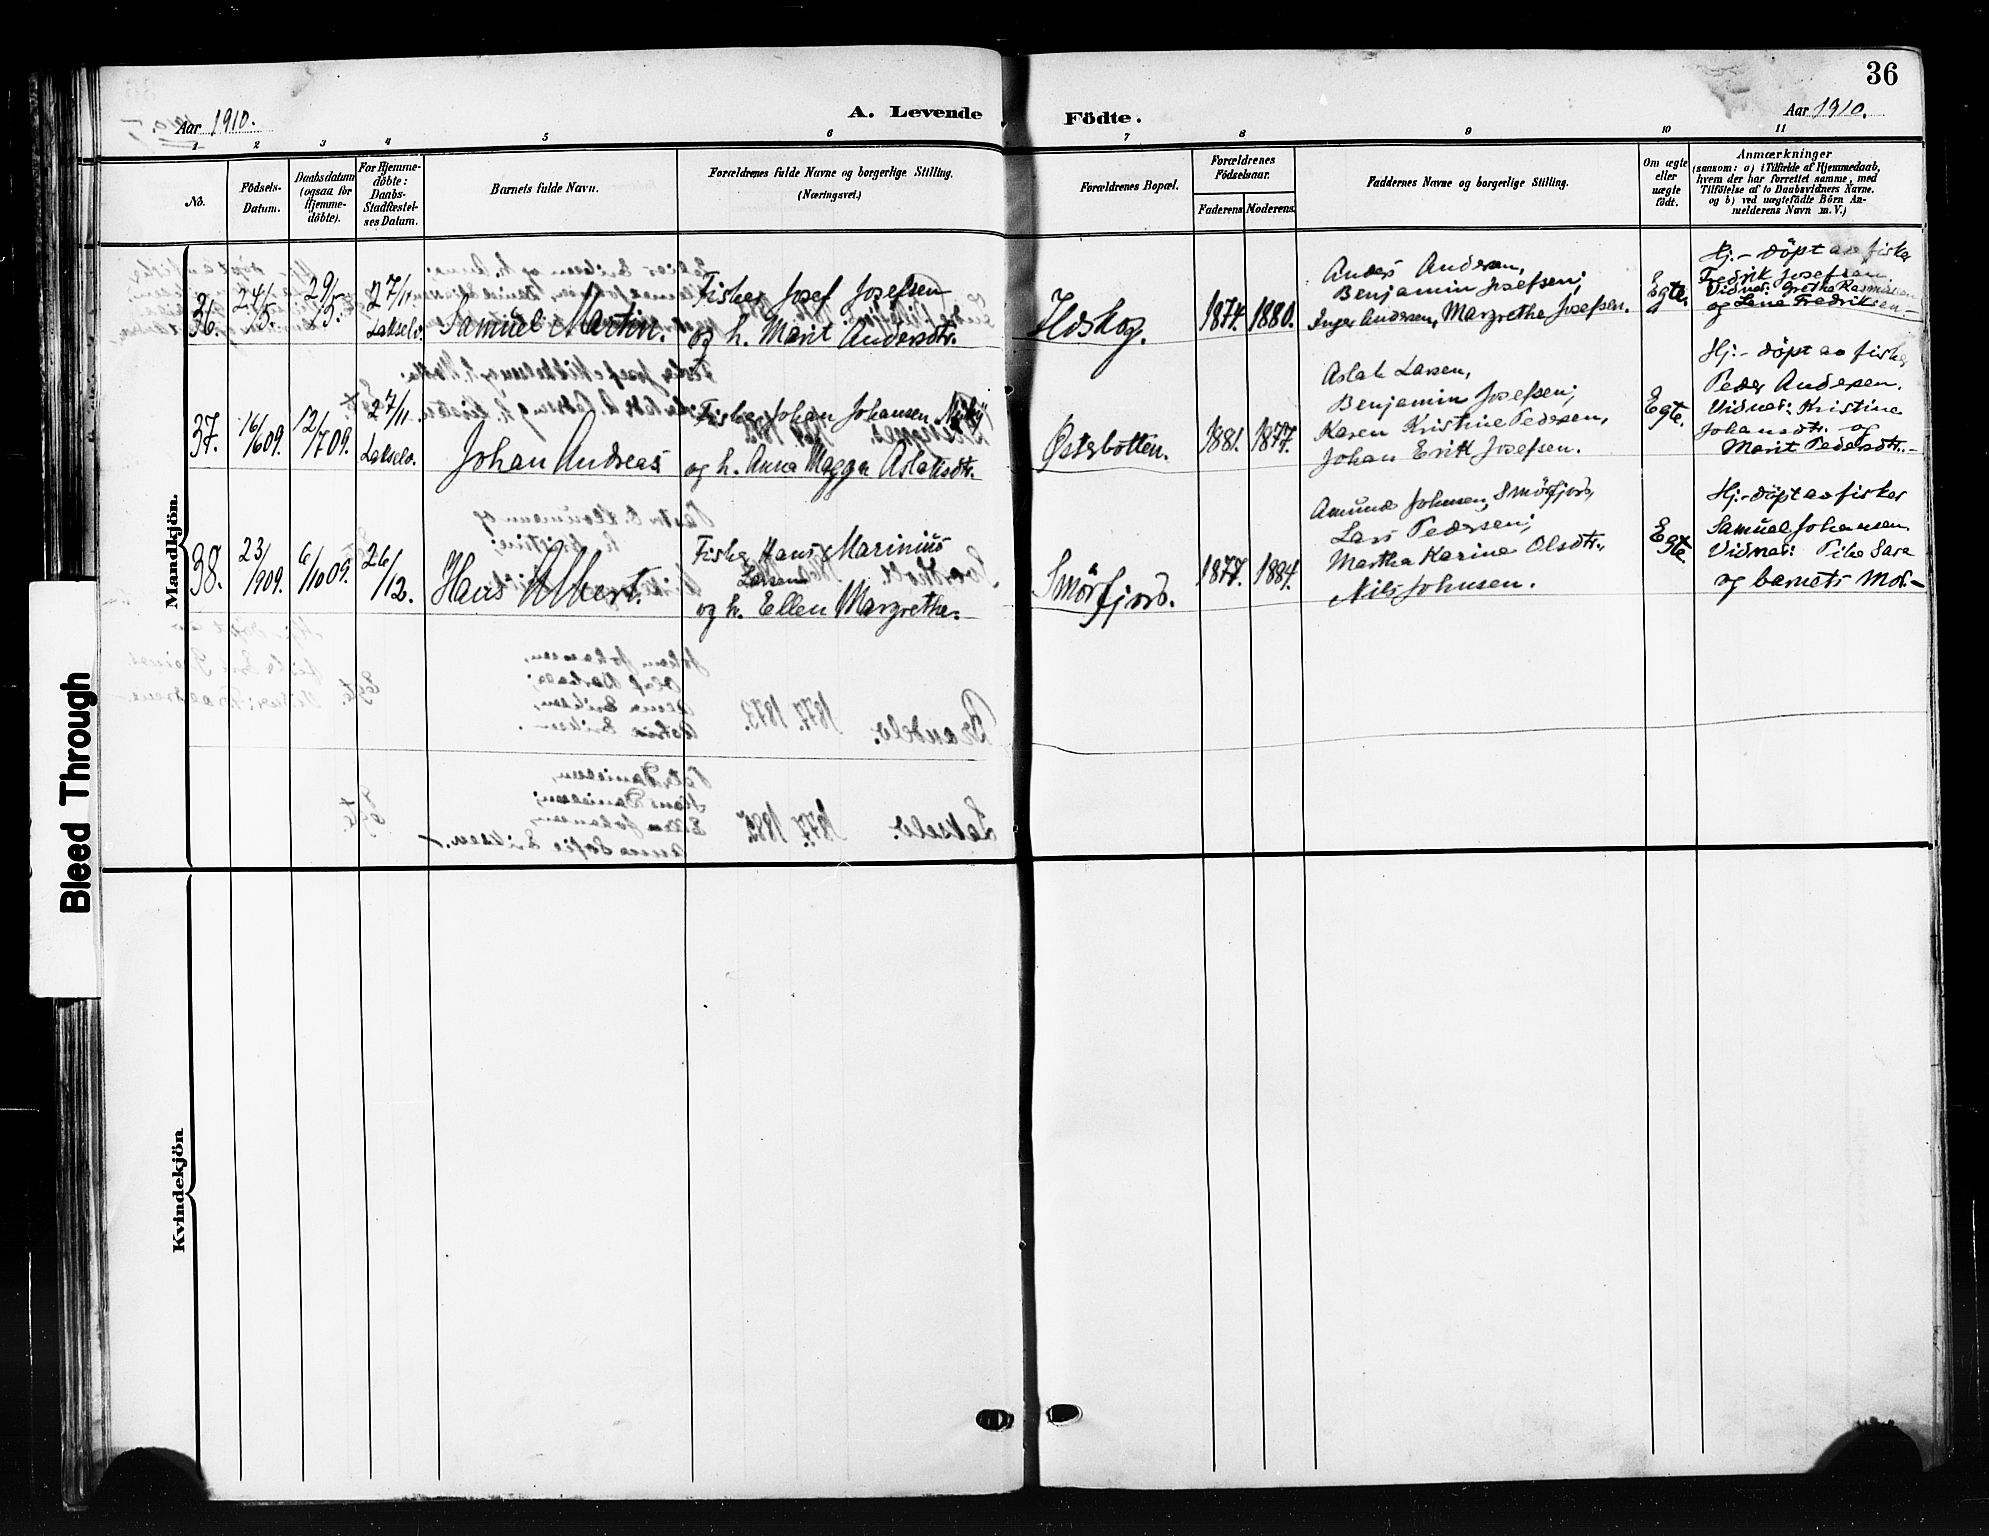 36
Aar 1910.
A. Levende
Födte.
Aar 1910.
1
2
3
4
5
6
7
8
9
10
11
No.
Födsels-
Datum.
Daabsdatum
(ogsaa for
Hjemme-
döbte).
For Hjemme-
döbte:
Daabs-
Stadfæstel-
ses Datum.
Barnets fulde Navn.
Forældrenes fulde Navne og borgerlige Stilling.
(Næringsvei.)
Forældrenes Bopæl.
Forældrenes
Födselsaar.
Faderens
Moderens.
Faddernes Navne og borgerlige Stilling.
Om ægte
eller
uægte
födt.
Anmærkninger
(saasom: a) i Tilfælde af Hjemmedaab,
hvem der har forrettet samme, med
Tilföielse af to Daabsvidners Navne.
og b) ved uægtefödte Börn An-
melderens Navn m. V.)
Mandkjön.
36.
24/5.
29/5.
27/11.
Lakselv.
Samuel Martin.
Fisker Josef Josefsen
og h. Marit Andersdtr.
Ildskog.
1874.
1880.
Anders Andersen,
Benjamin Josefsen;
Inger Andersen, Margrethe Josefsen.
Egte.
Hj.- döpt av fisker
Fredrik Josefsen.
Vidner: Grethe Rasmussen
og Lena Fredriksen-
37.
16/609.
12/709.
27/11.
Lakselv.
Johan Andreas
Fisker Johan Johansen
og h. Anna Magga Aslaksdtr.
Østerbotten.
1881.
1877.
Aslak Larsen,
Benjamin Josefsen;
Karen Kristine Pedersen,
Johan Erik Josefsen.
Egte.
Hj.- döpt av fisker
Peder Andersen.
Vidner: Kristine
Johansdtr. og
Marit Pedersdtr.-
38.
23/909.
6/1009.
26/12.
Hans Albert.
Fisker Hans Marinius
Larsen
og h. Ellen Margrethe.
Smörfjord.
1877.
1884.
Amund Johnsen, Smörfjord,
Lars Pedersen;
Martha Karine Olsdtr.,
Nils Johnsen.
Egte.
Hj.- döpt av fisker
Samuel Johansen
Vidner: Pike Sara
og barnets Mor.-
Kvindekjön
Bleed Through